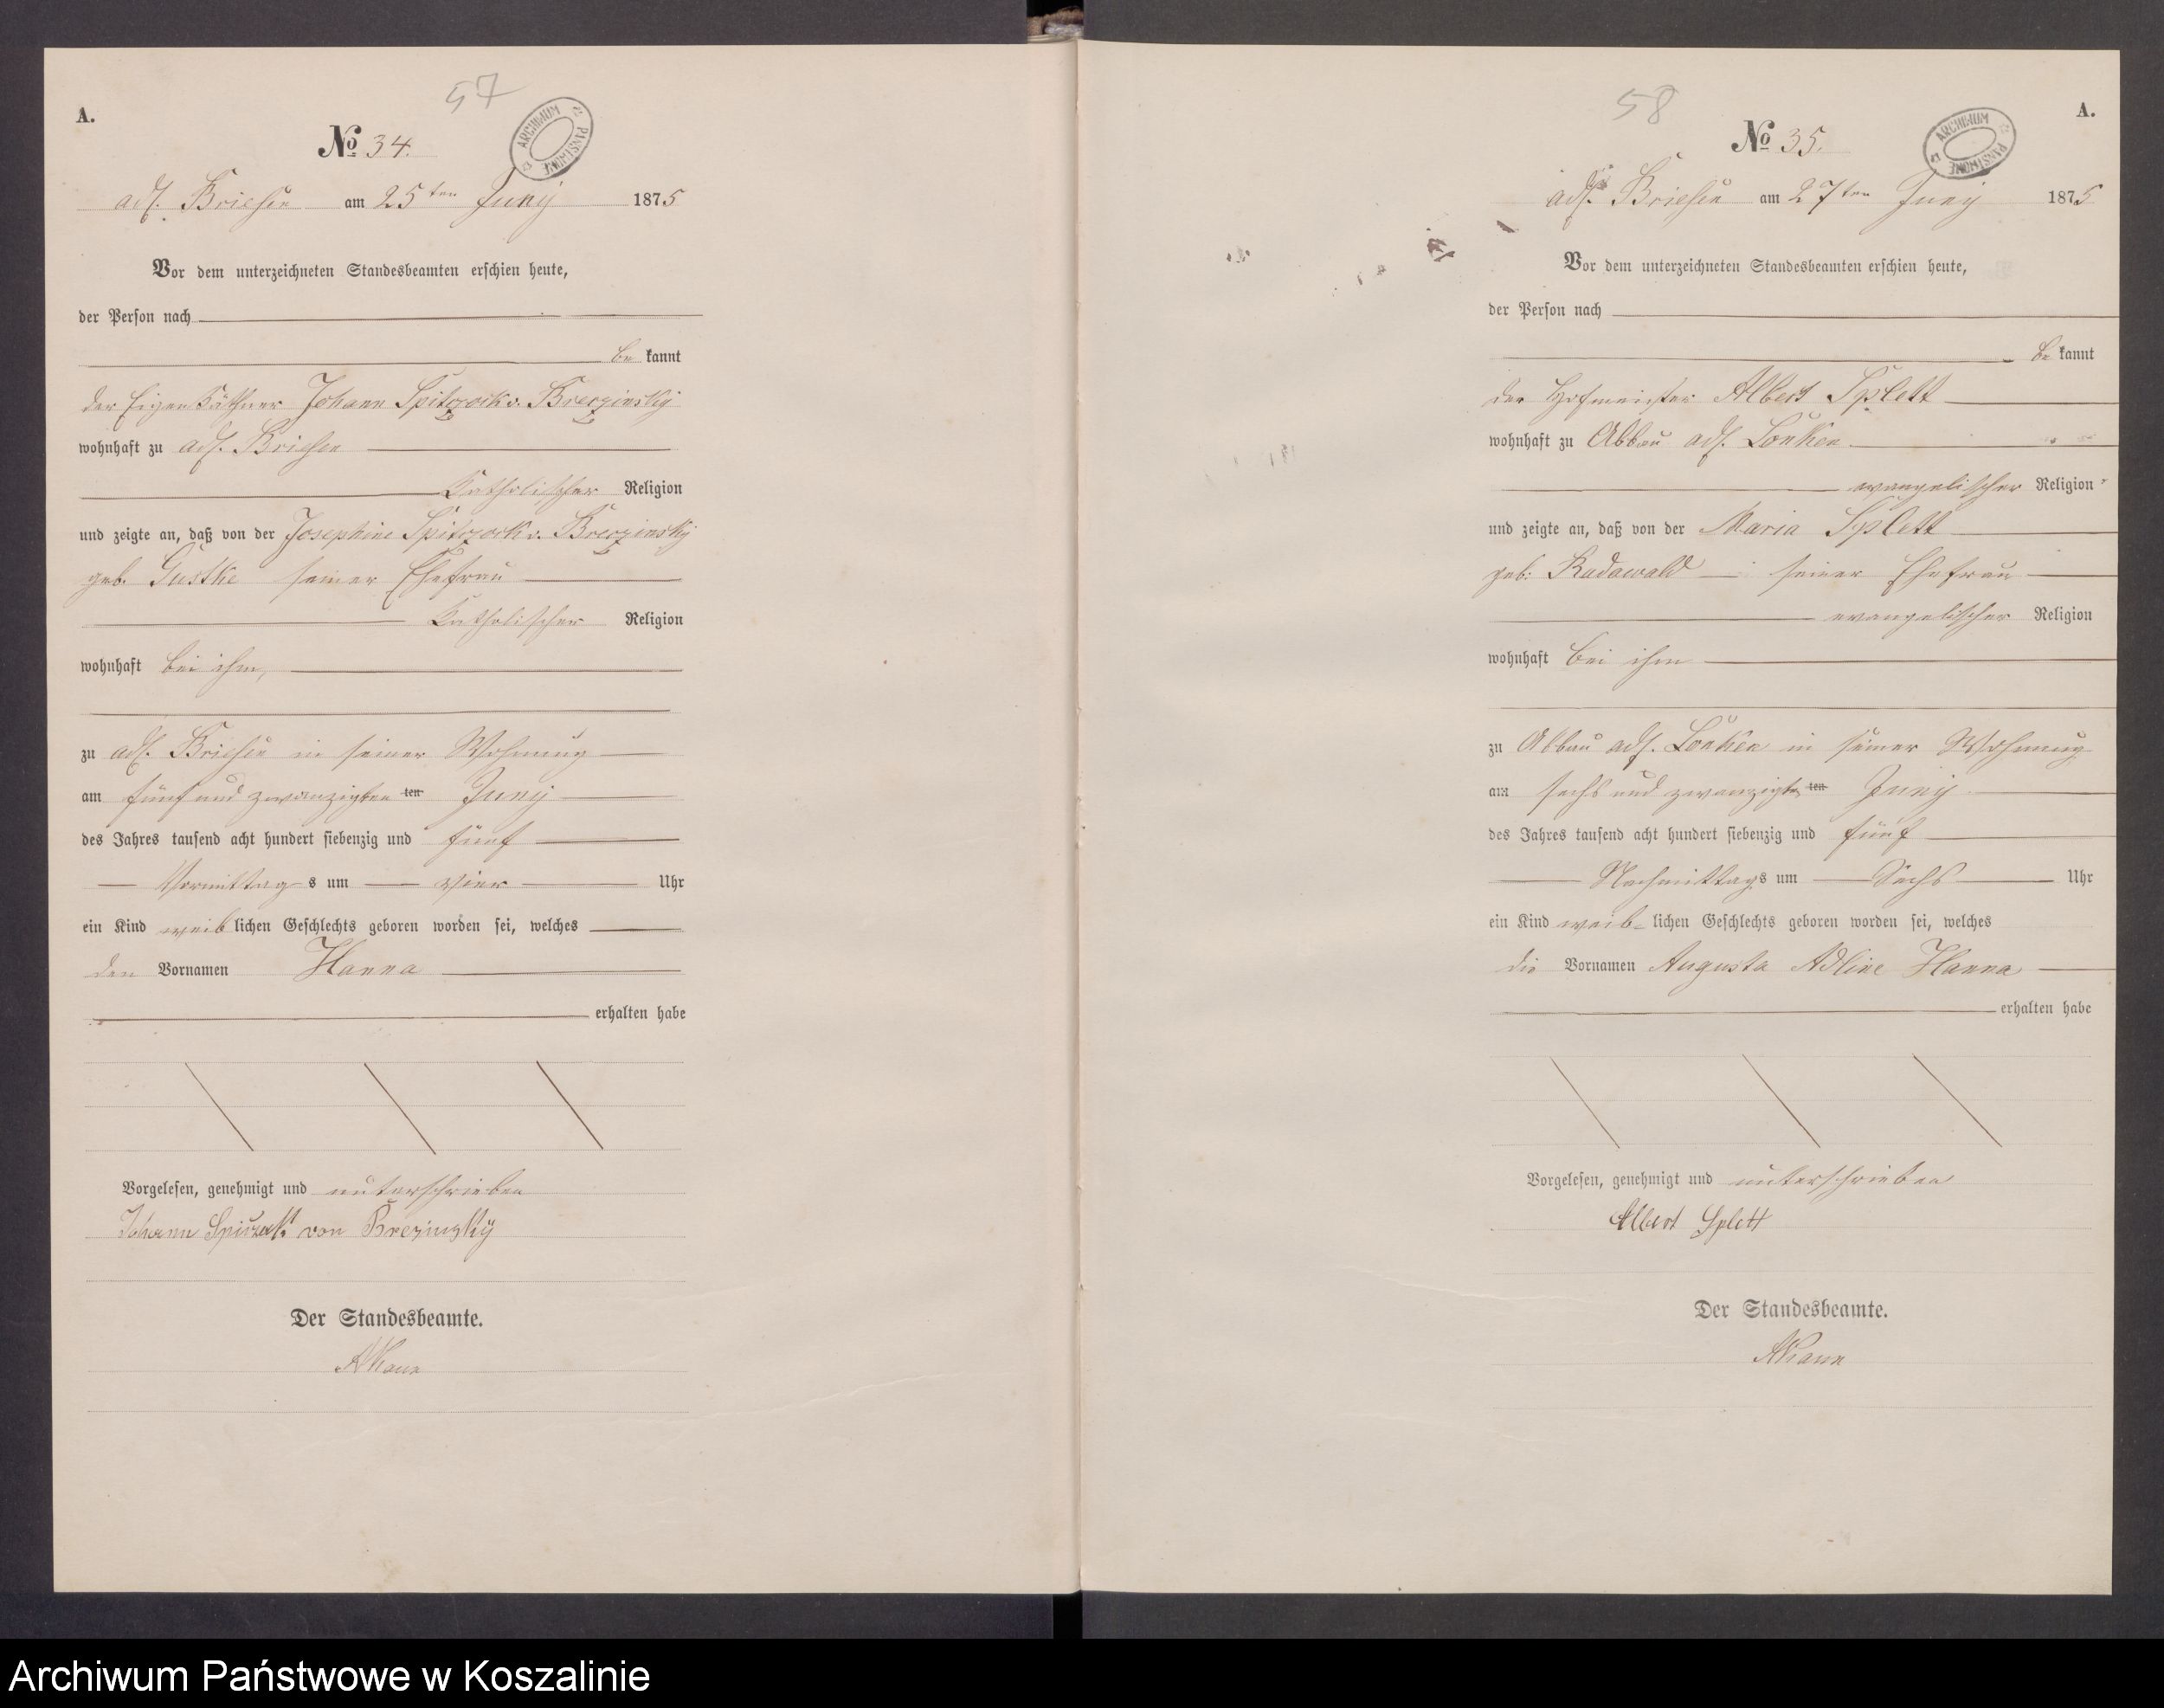 57
A.
No 34.
ARCHIWUM PAŃSTWOWE
adl. Briesen am 25ten Juny 1875
Vor dem unterzeichneten Standesbeamten erschien heute,
der Person nach
be kannt
der Eigenkäthner Johann Spitzock v. Breczinsky
wohnhaft zu adl. Briesen
Katholischer Religion
und zeigte an, daß von der Josephine Spitzock v. Breczinsky
geb. Gustke seiner Ehefrau
Katholischer Religion
wohnhaft bei ihm,
zu adl. Briesen in seiner Wohnung
am fünf und zwanzigsten ten Juny
des Jahres tausend acht hundert siebenzig und fünf
Vormittag s um vier Uhr
ein Kind weib lichen Geschlechts geboren worden sei, welches
den Vornamen Hanna
erhalten habe
Vorgelesen, genehmigt und unterschrieben
Johann von Brezinsky
Der Standesbeamte.
58
A.
No 35.
ARCHIWUM PAŃSTWOWE
adl. Briesen am 27ten Juny 1875
Vor dem unterzeichneten Standesbeamten erschien heute,
der Person nach
be kannt
der Hofmeister Albert Splett
wohnhaft zu Abbau adl. Lonken
evangelischer Religion
und zeigte an, daß von der Maria Splett
geb: Radawald seiner Ehefrau
evangelischer Religion
wohnhaft bei ihm
zu Abbau adl. Lonken in seiner Wohnung
am sechs und zwanzigsten ten Juny
des Jahres tausend acht hundert siebenzig und fünf
Nachmittags um Sechs Uhr
ein Kind weib- lichen Geschlechts geboren worden sei, welches
die Vornamen Augusta Adline Hanna
erhalten habe
Vorgelesen, genehmigt und unterschrieben
Albert Splett
Der Standesbeamte.
Archiwum Państwowe w Koszalinie